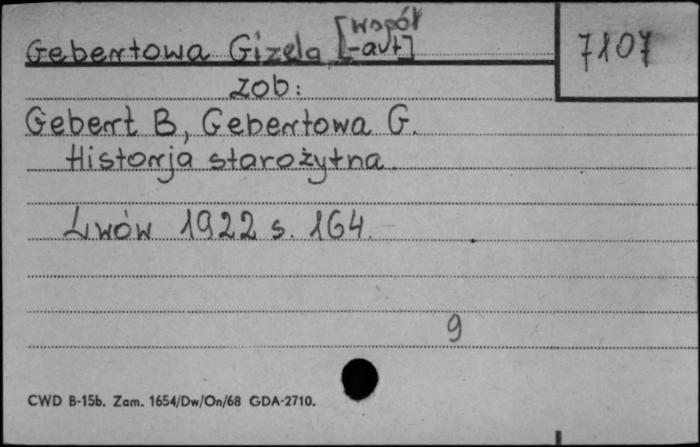 Gebertowa Gizela [współ
-aut]
7107
zob:
Gebert B, Gebertowa G.
Historja starożytna.
Lwów 1922 s. 164.
9
CWD B-15b. Zam. 1654/Dw/On/68 GDA-2710.